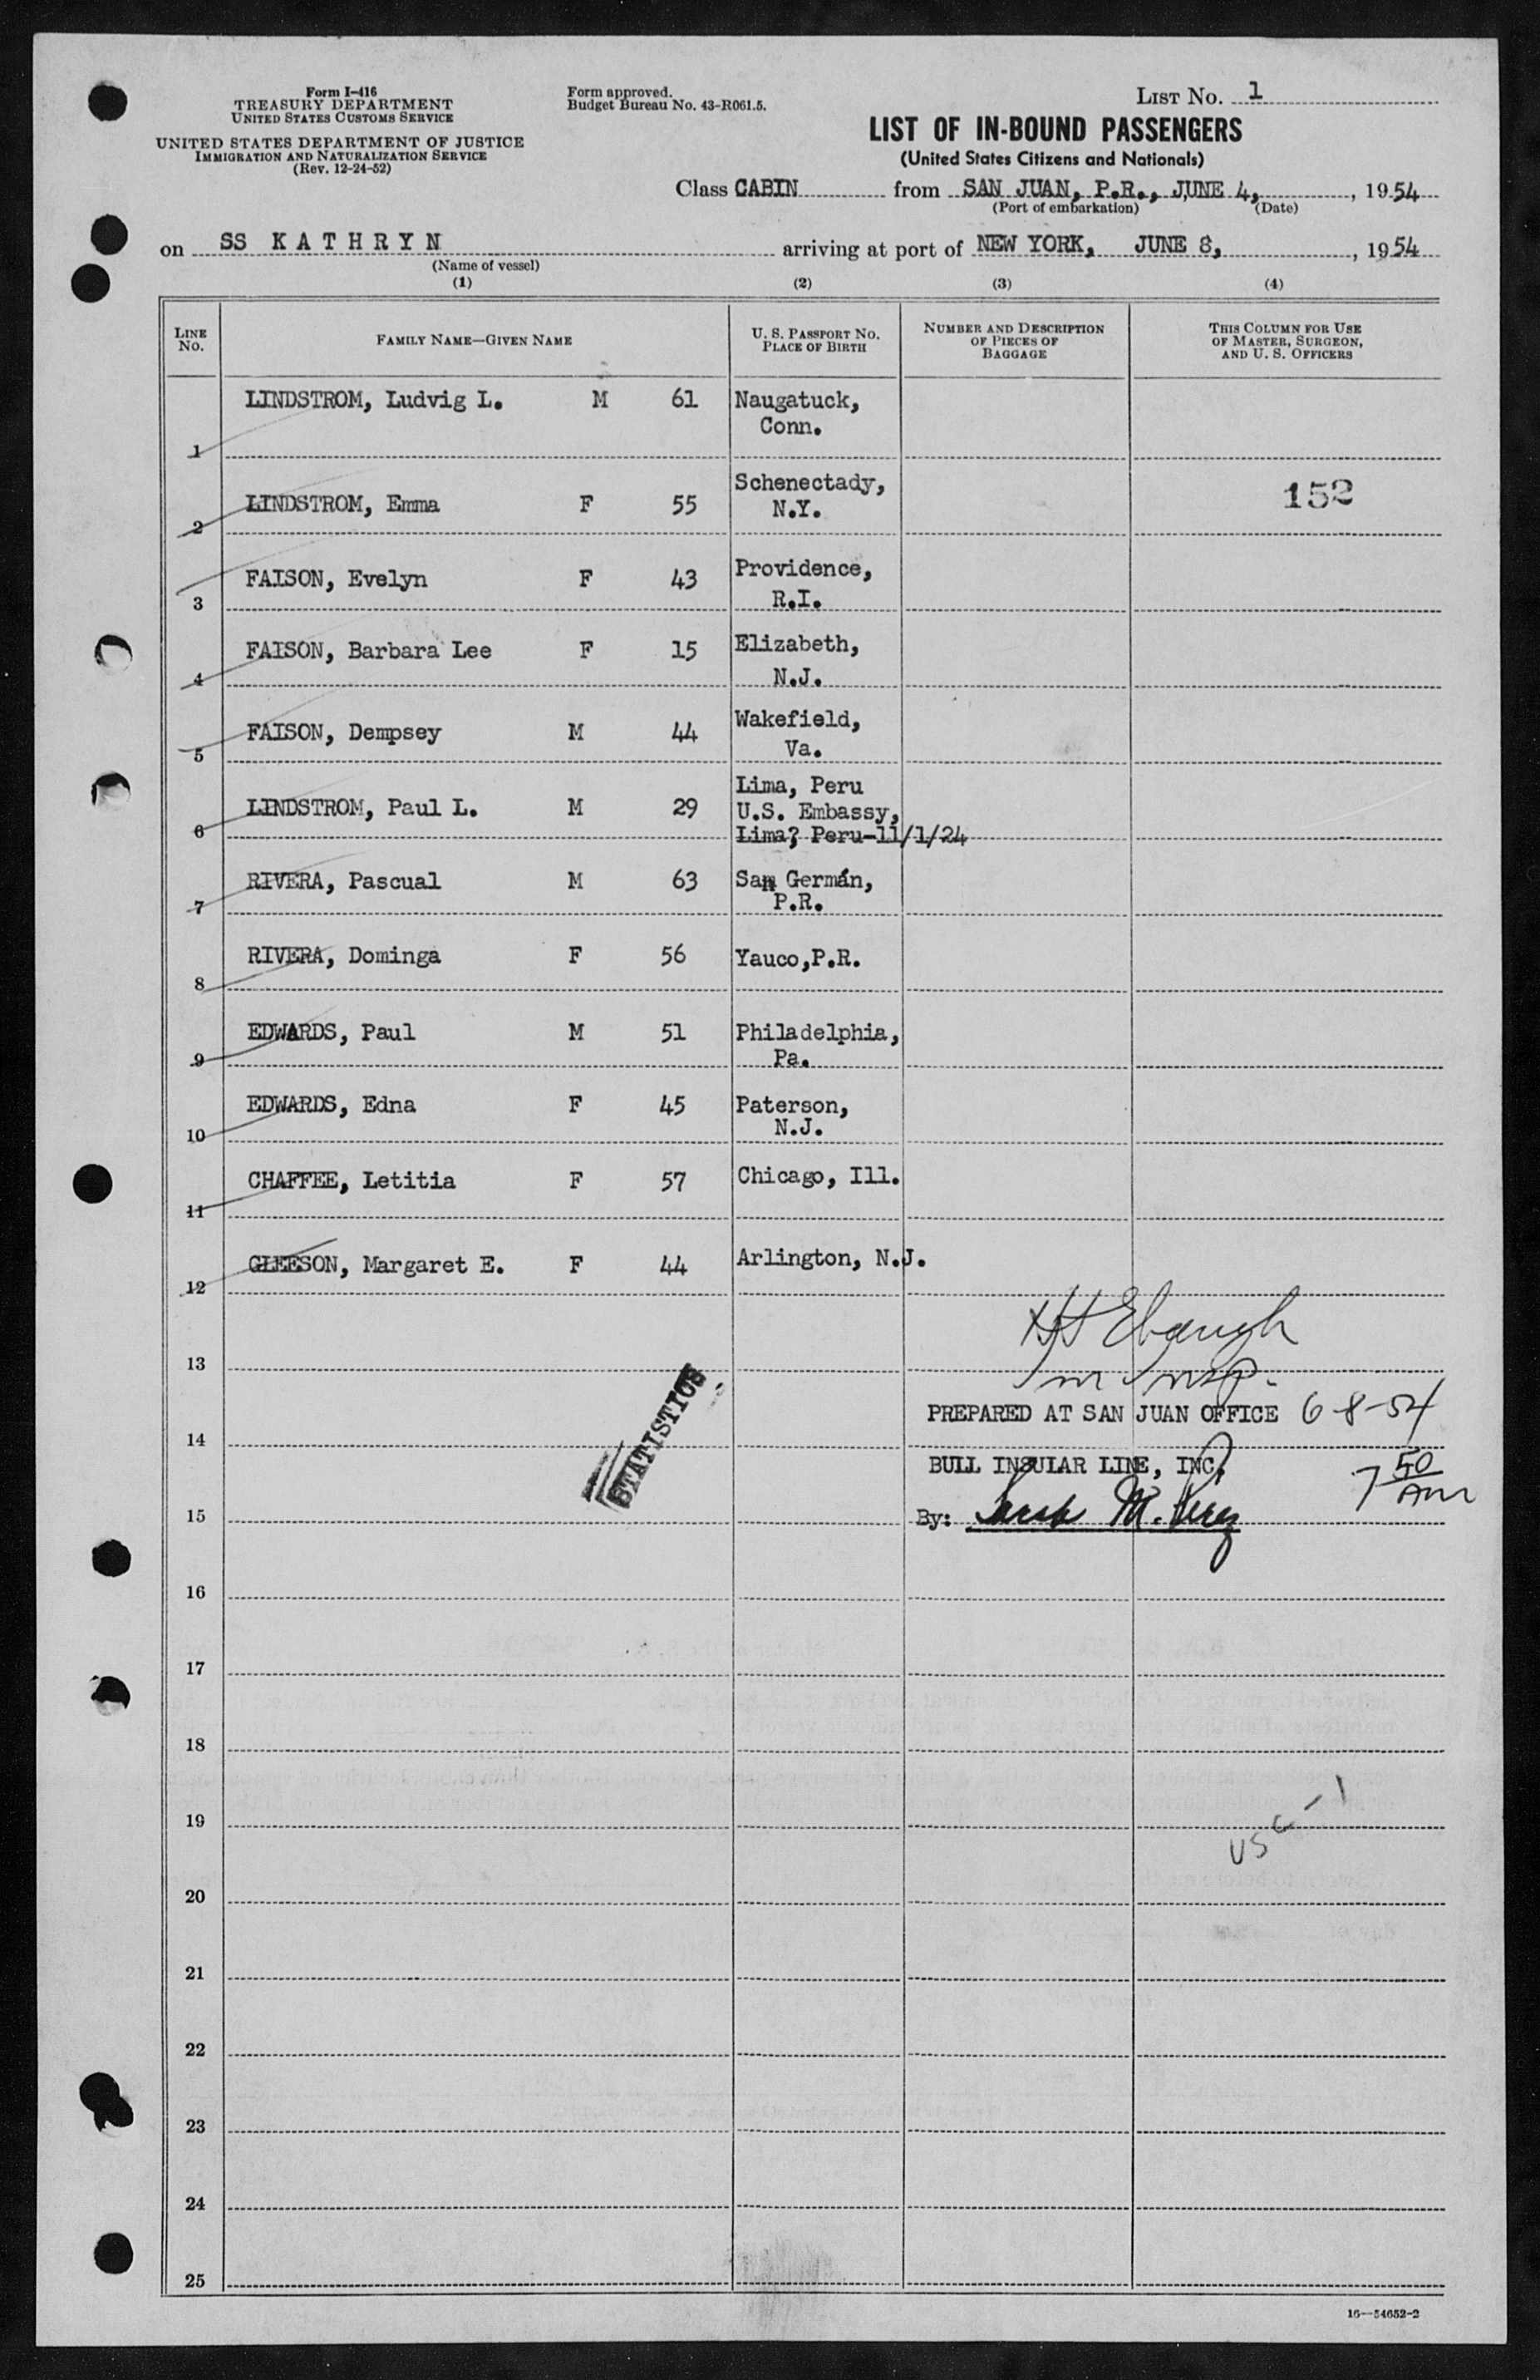 Form I-416
TREASURY DEPARTMENT
UNITED STATES CUSTOMS SERVICE
UNITED STATES DEPARTMENT OF JUSTICE
IMMIGRATION AND NATURALIZATION SERVICE
(Rev. 12-24-52)
Form approved.
Budget Bureau No. 43-R061.5.
LIST NO. 1
LIST OF IN-BOUND PASSENGERS
(United States Citizens and Nationals)
Class CABIN from SAN JUAN, P.R., JUNE 4, , 1954
(Port of embarkation) (Date)
on SS K A T H R Y N arriving at port of NEW YORK, JUNE 8, , 1954
(Name of vessel)
(1) (2) (3) (4)
LINE NO. FAMILY NAME—GIVEN NAME U. S. PASSPORT NO. PLACE OF BIRTH NUMBER AND DESCRIPTION OF PIECES OF BAGGAGE THIS COLUMN FOR USE OF MASTER, SURGEON, AND U. S. OFFICERS
1 LINDSTROM, Ludvig L. M 61 Naugatuck, Conn.
2 LINDSTROM, Emma F 55 Schenectady, N.Y. 152
3 FAISON, Evelyn F 43 Providence, R.I.
4 FAISON, Barbara Lee F 15 Elizabeth, N.J.
5 FAISON, Dempsey M 44 Wakefield, Va.
6 LINDSTROM, Paul L. M 29 Lima, Peru
U.S. Embassy,
Lima? Peru-11/1/24
7 RIVERA, Pascual M 63 San Germán, P.R.
8 RIVERA, Dominga F 56 Yauco,P.R.
9 EDWARDS, Paul M 51 Philadelphia, Pa.
10 EDWARDS, Edna F 45 Paterson, N.J.
11 CHAFFEE, Letitia F 57 Chicago, Ill.
12 GLEESON, Margaret E. F 44 Arlington, N.J.
HH Ebaugh
13
Im Insp.
STATISTICS
PREPARED AT SAN JUAN OFFICE 6-8-54
14
BULL INSULAR LINE, INC. 7 50 AM
15 By: Sarah M. Perez
16
17
18
19
USC-1
20
21
22
23
24
25
16—54652-2